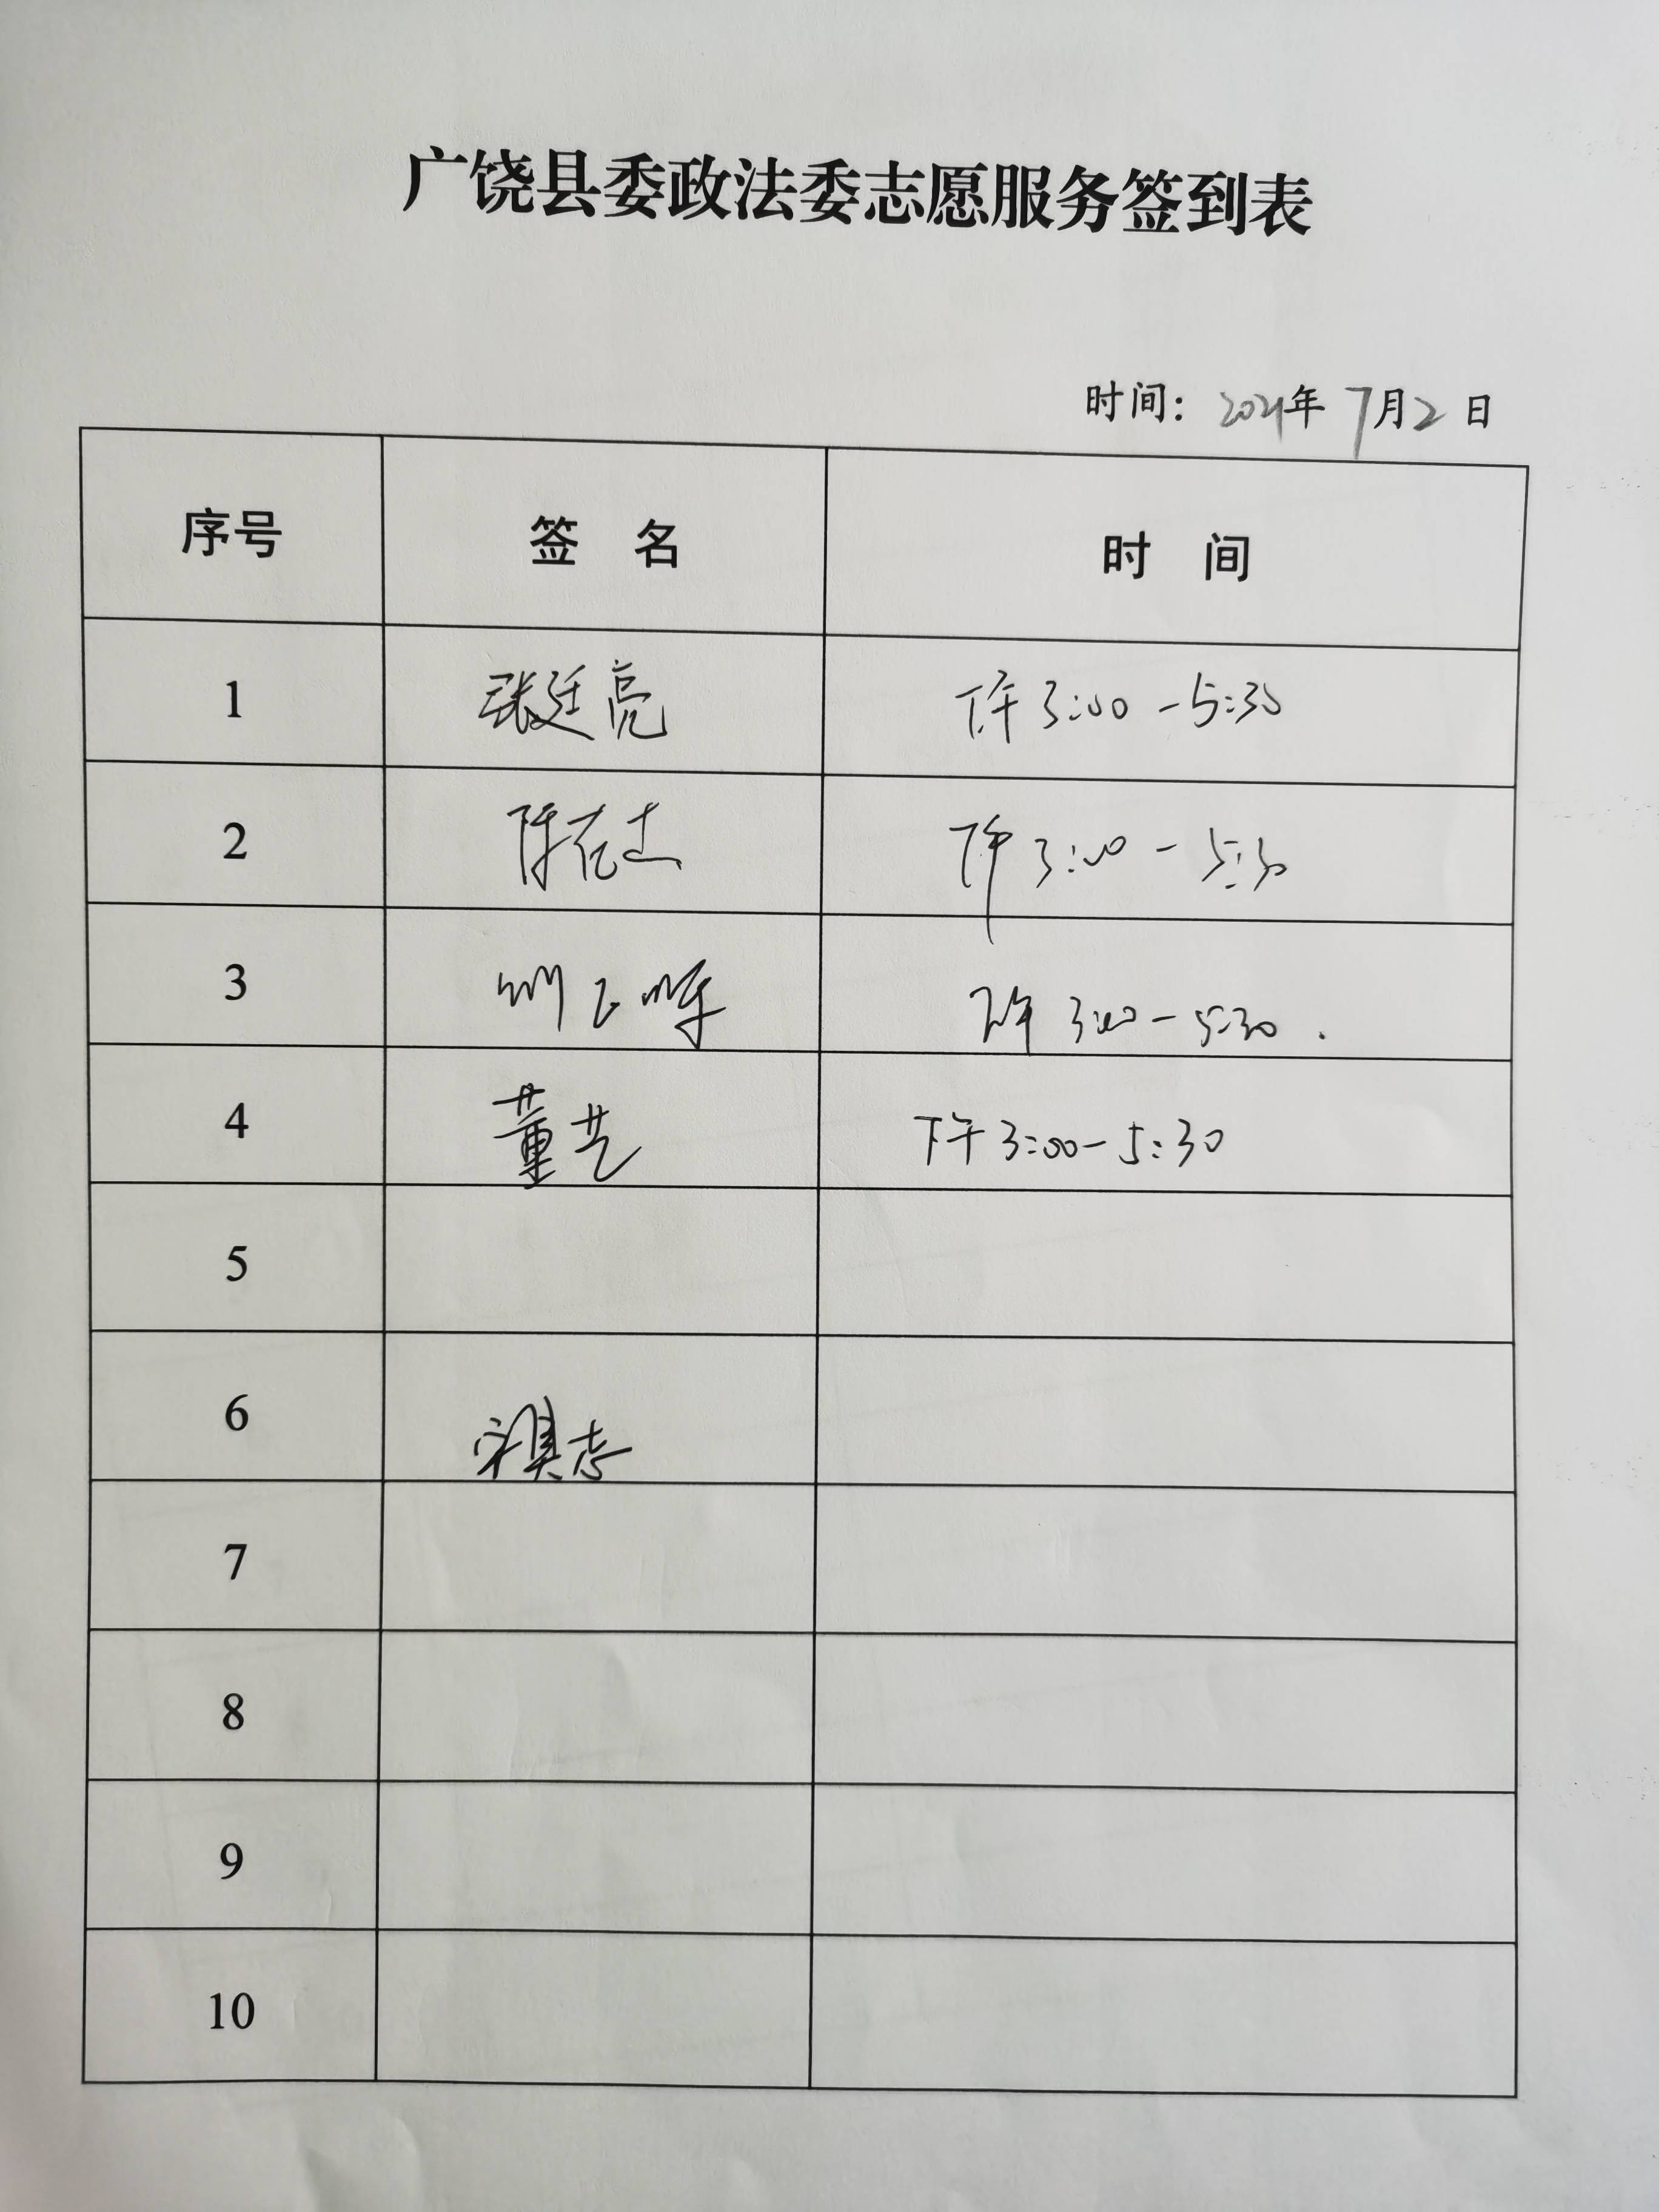 广饶县委政法委志愿服务签到表
时间：2021年7月2日
序号 签 名 时 间
1 张廷亮 下午3:00-5:30
2 陈 下午3:00-5:30
3 下午3:00-5:30.
4 董艺 下午3:00-5:30
5
6 宋其志
7
8
9
10